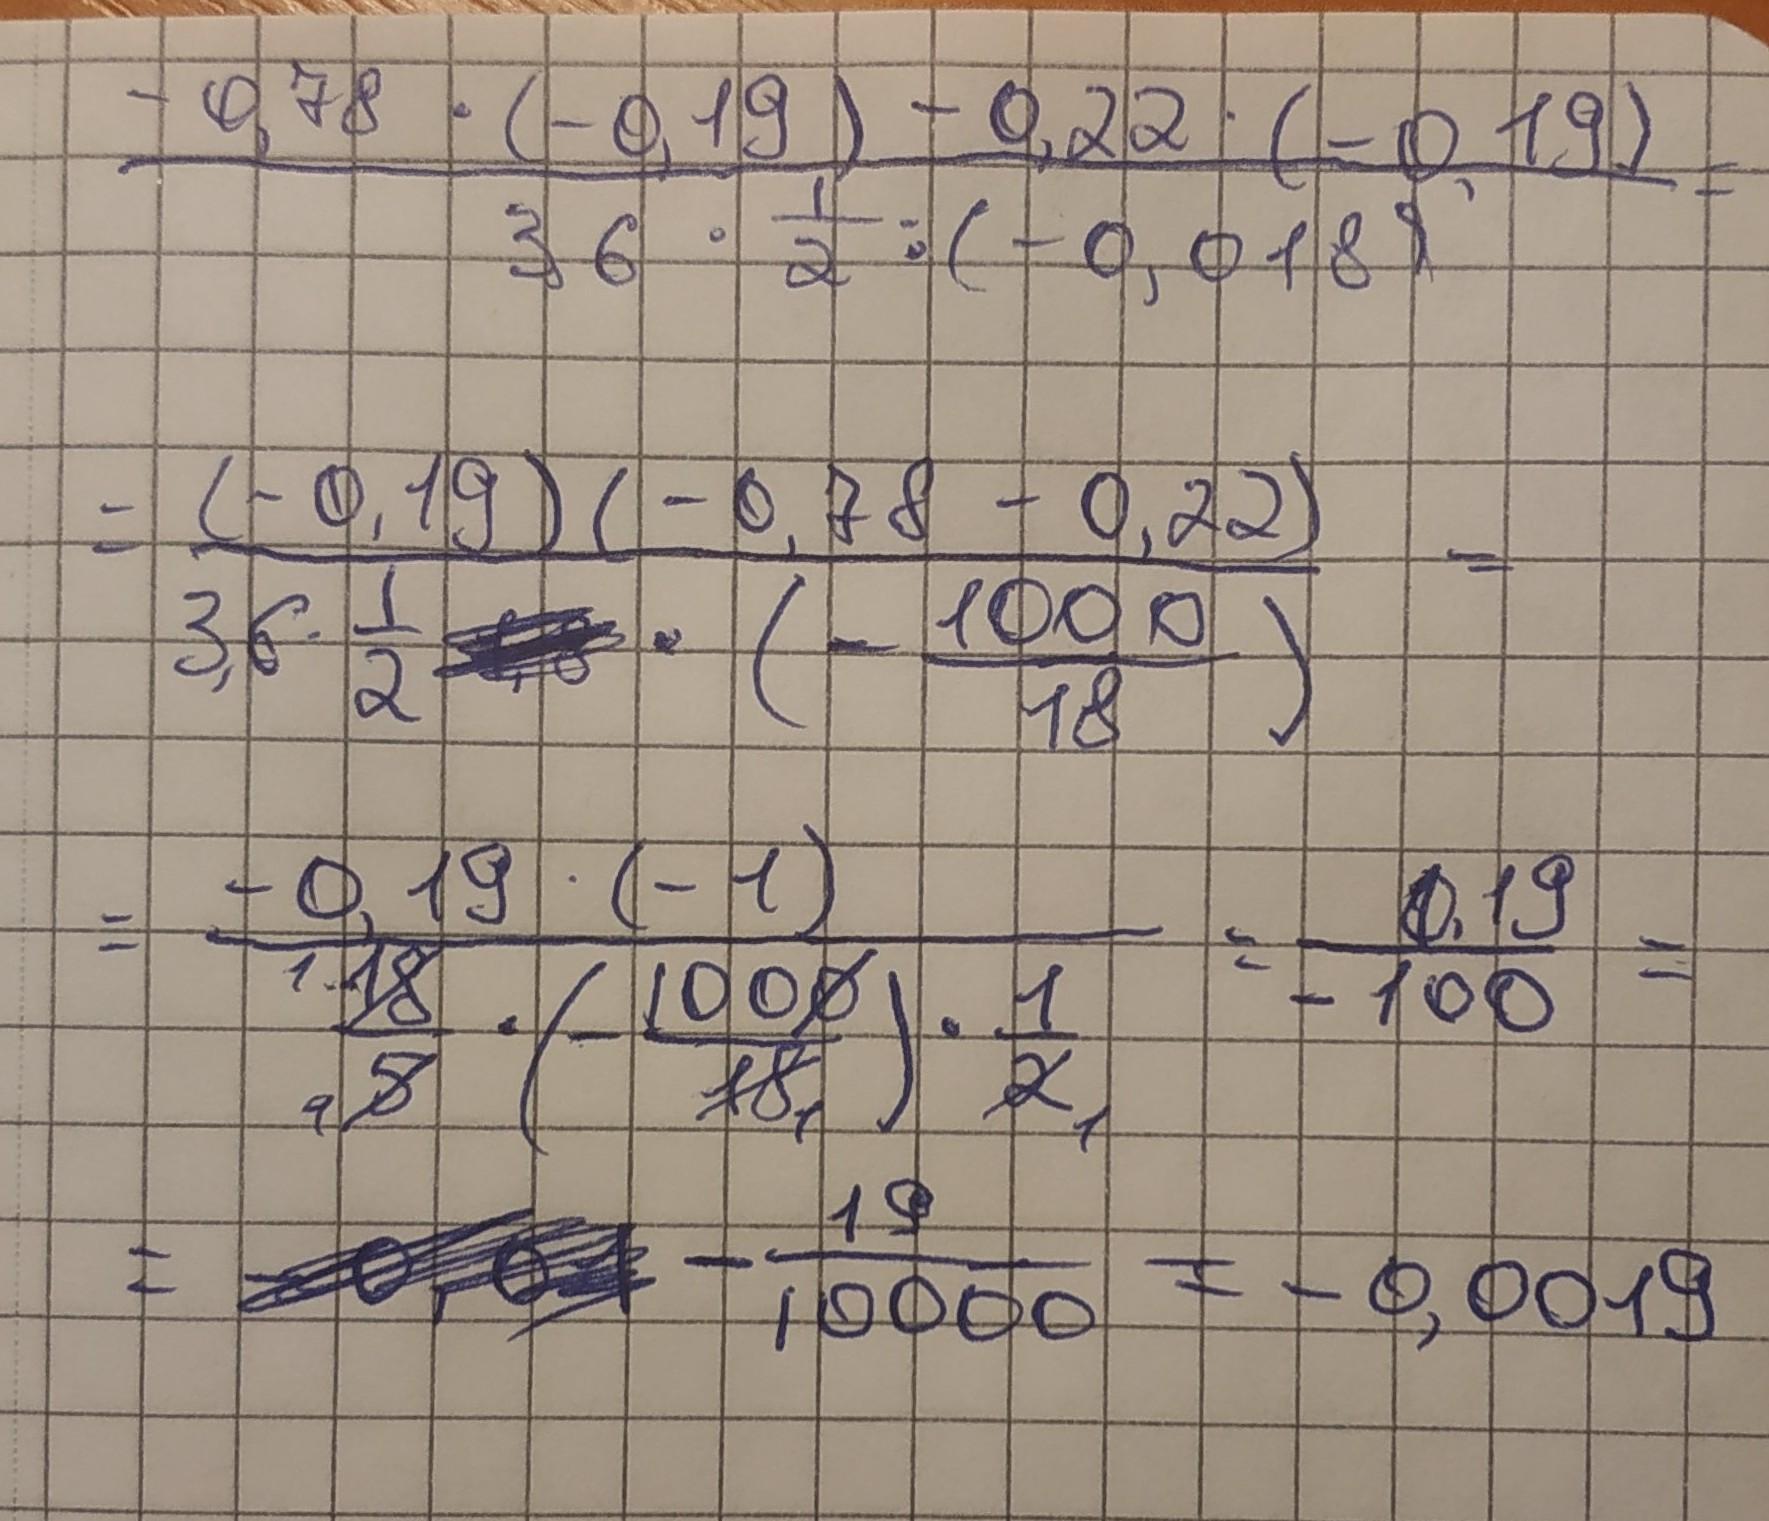 -0,78 · (-0,19) - 0,22 · (-0,19) =
36 · 1/2 : (-0,018)
= (-0,19)(-0,78 - 0,22) =
3,6 · 1/2 · (- 1000/18)
= -0,19 · (-1) = 0,19 =
18/5 · (- 1000/18) · 1/2 -100
= - 19/10000 = -0,0019